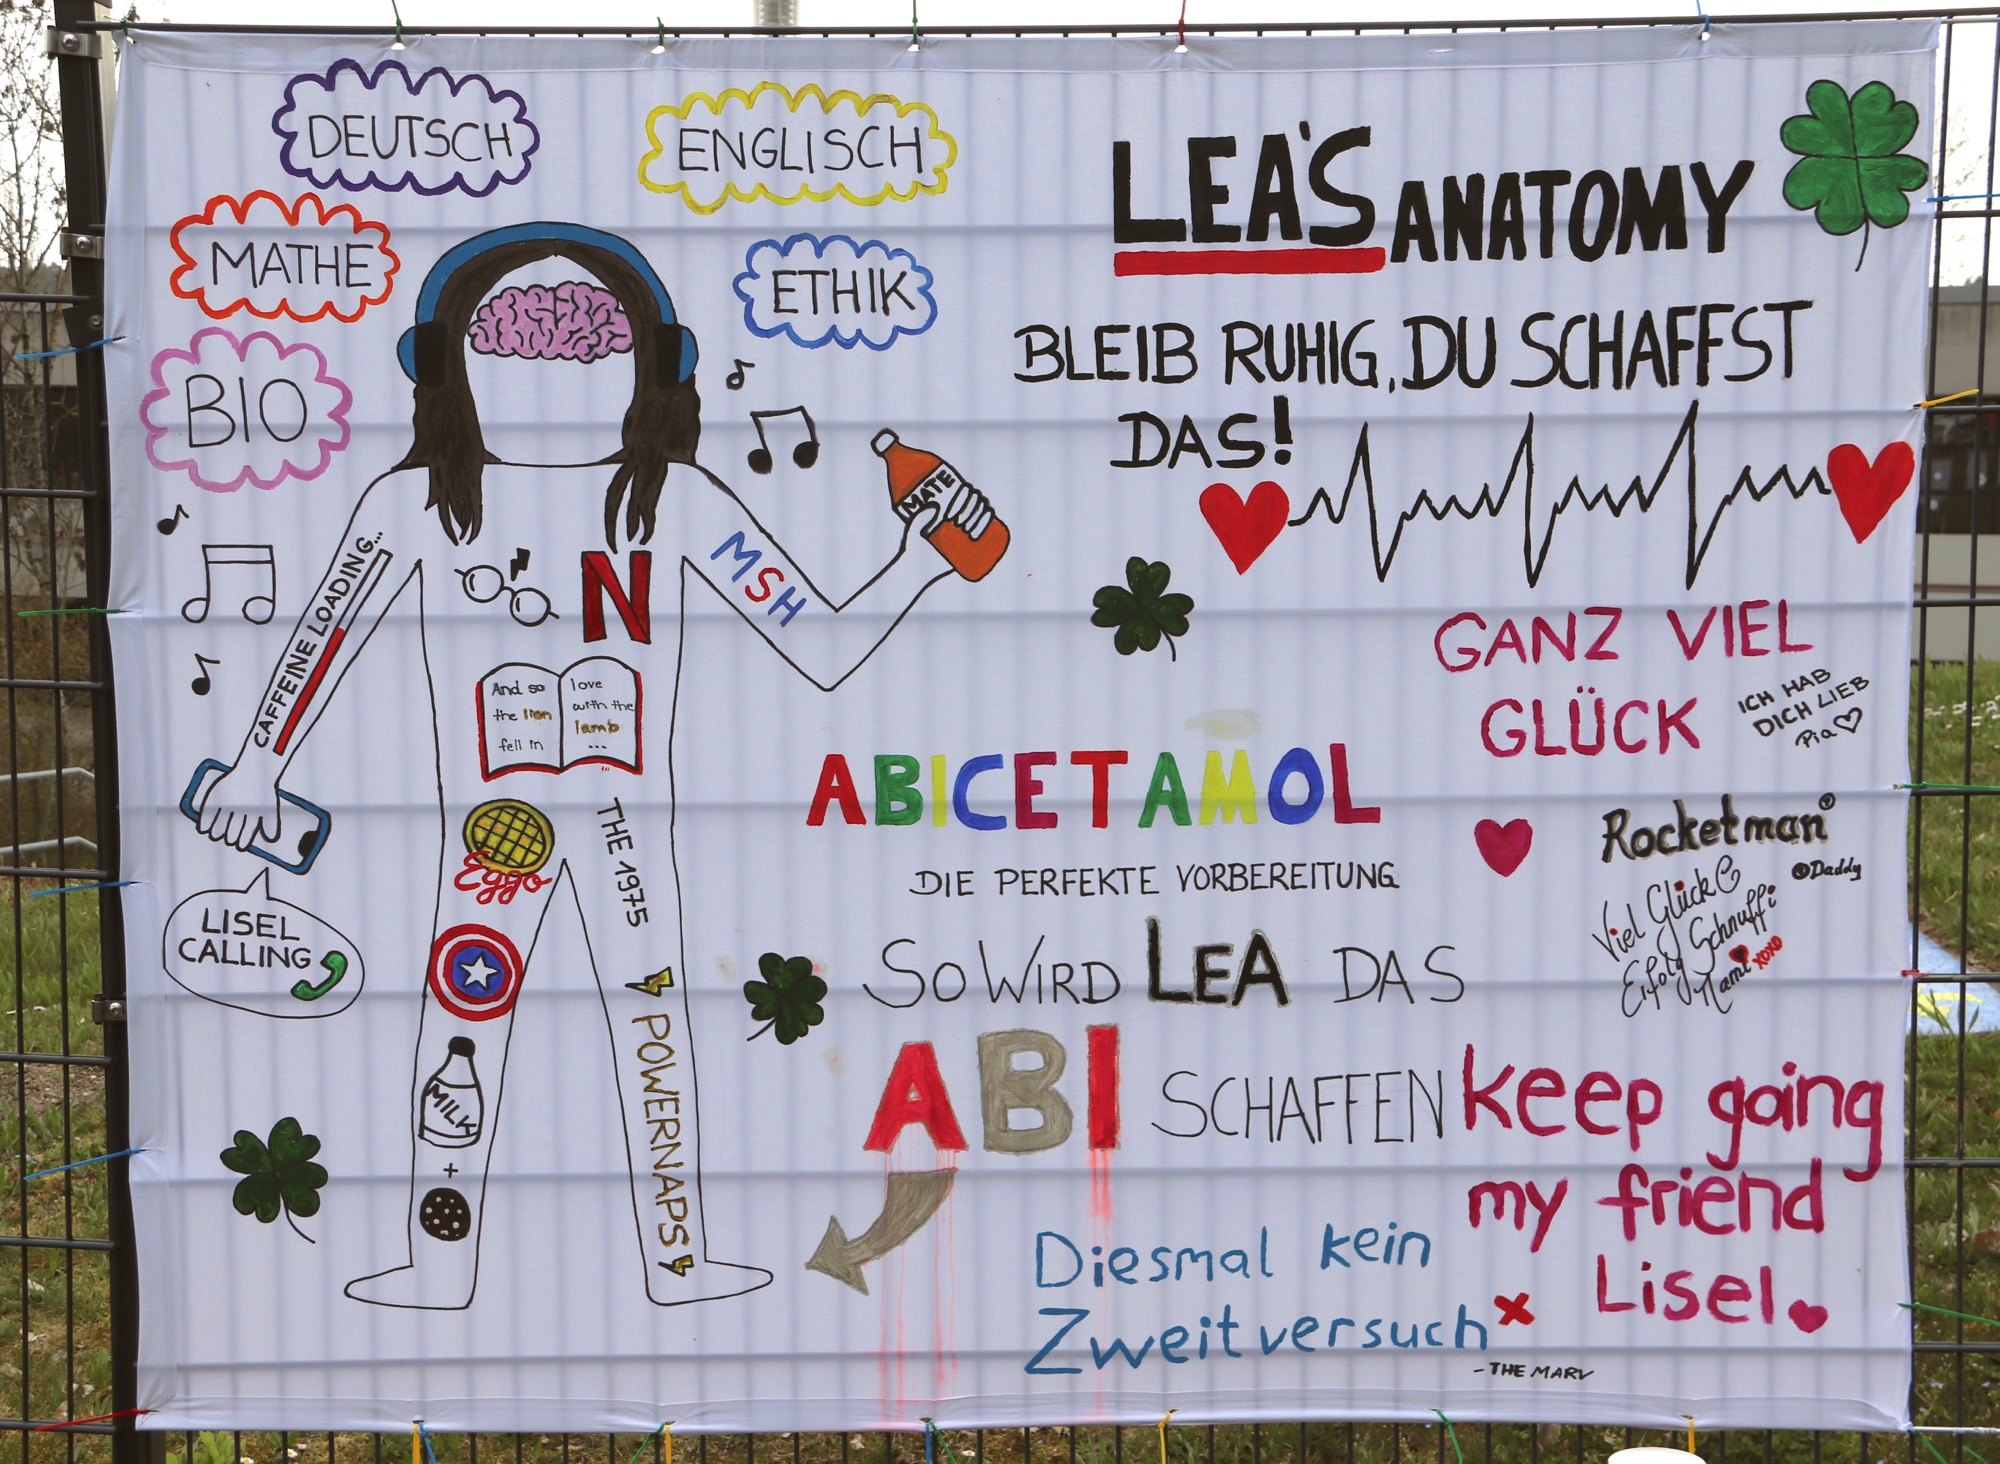 DEUTSCH
ENGLISCH
MATHE
ETHIK
BIO
LEA'S ANATOMY
BLEIB RUHIG, DU SCHAFFST
DAS!
MATE
MSH
CAFFEINE LOADING...
N
And so
the lion
fell in
love
with the
lamb
...
Eggo
THE 1975
LISEL
CALLING
MILK
+
POWERNAPS
GANZ VIEL
GLÜCK
ICH HAB
DICH LIEB
Pia
ABICETAMOL
DIE PERFEKTE VORBEREITUNG
SO WIRD LEA DAS
ABI SCHAFFEN
Rocketman
Daddy
Viel Glück
Erfolg Schnuffi
Mami XOXO
keep going
my friend
Lisel
Diesmal kein
Zweitversuch x
- THE MARV